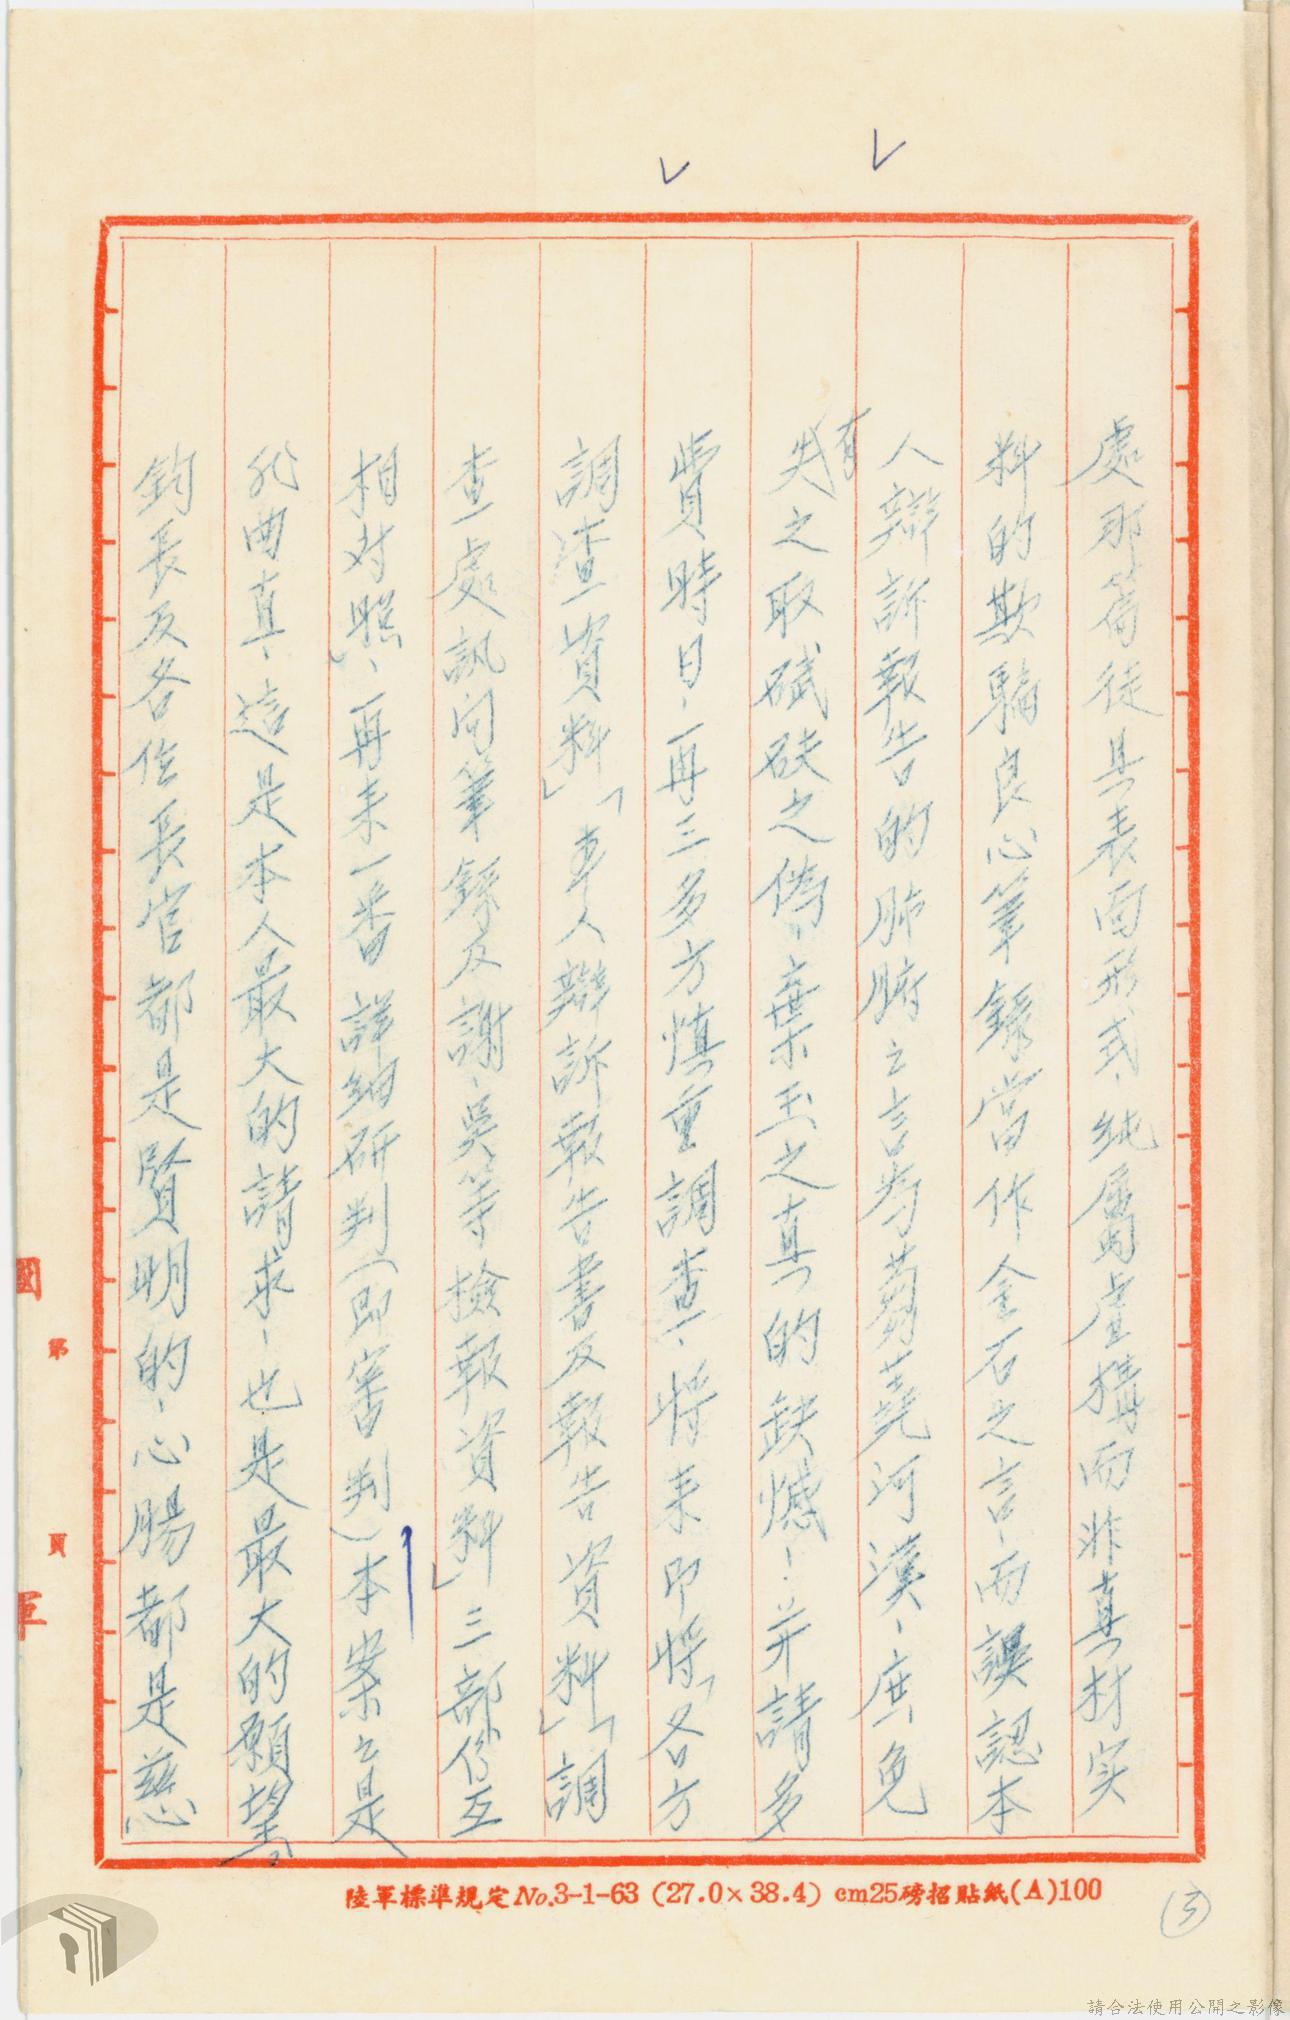 處那篇徒具表面形式、純屬虛構而非真材实
料的欺騙良心筆錄當作金石之言、而誤認本
人辯訴報告的肺腑之言為蒭蕘河漢、庶免
有
失之取碔砆之偽、棄玉之真的缺憾！并請多
費時日、再三多方慎重調查、将来即将「各方
調查資料」「本人辯訴報告書及報告資料」「調
查處訊问筆錄及謝、吳等檢報資料」三部份互
相对照、再来一番詳細研判(即審判)本案之是
非曲直、這是本人最大的請求、也是最大的願望、
鈞長及各位長官都是賢明的、心腸都是慈
國 第 頁 軍
陸軍標準規定No.3-1-63 (27.0×38.4) cm25磅招貼紙(A)100
請合法使用公開之影像